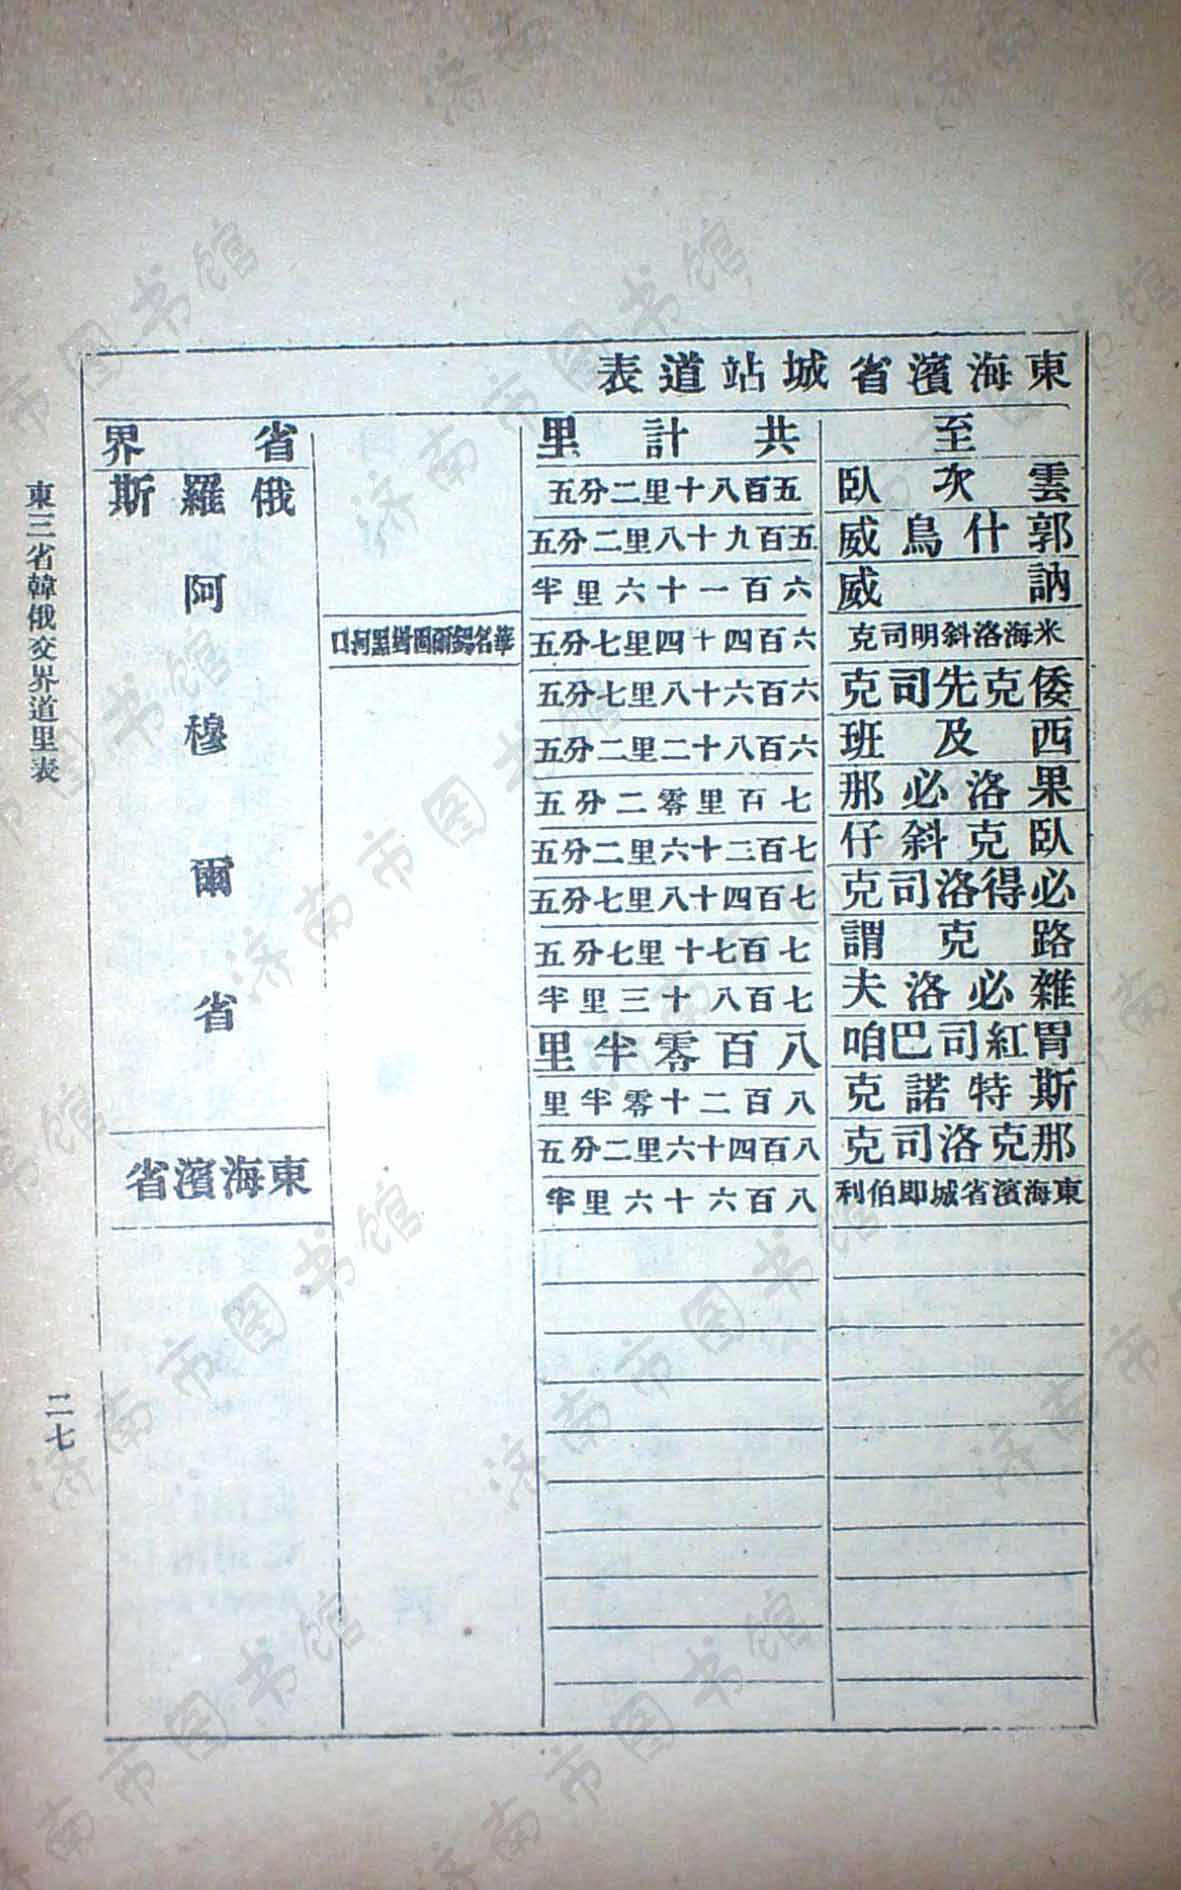 東海濱省城站道表
至 共計里 省界
雲次臥 五百八十里二分五 俄羅斯阿穆爾省
郭什鳥威 五百九十八里二分五
訥威 六百一十六里半
米海洛斜明司克 六百四十四里七分五 華名錫爾固對黑河口
倭克先司克 六百六十八里七分五
西及班 六百八十二里二分五
果洛必那 七百里零二分五
臥克斜仔 七百二十六里二分五
必得洛司克 七百四十八里七分五
路克謂 七百七十里七分五
雜必洛夫 七百八十三里半
胃紅司巴咱 八百零半里
斯特諾克 八百二十零半里
那克洛司克 八百四十六里二分五 東海濱省
東海濱省城即伯利 八百六十六里半
東三省韓俄交界道里表
二七
济南市图书馆